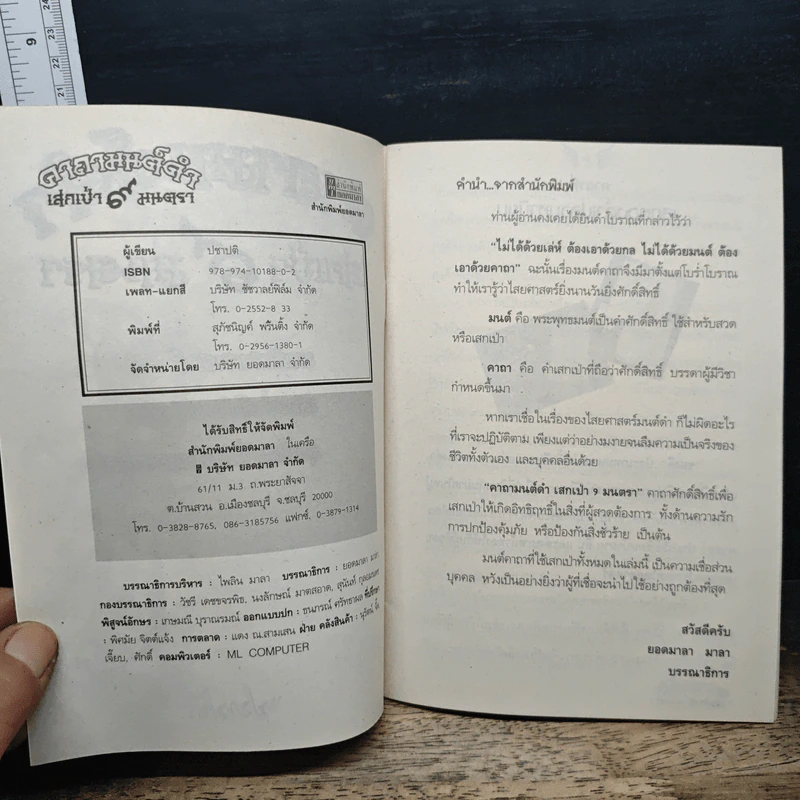 คาถามนต์ดำ
เสกเป่า ๙ มนตรา
สำนักพิมพ์ยอดมาลา
ผู้เขียน ปชาปติ
ISBN 978-974-10188-0-2
เพลท-แยกสี บริษัท ชัชวาลย์ฟิล์ม จำกัด
โทร. 0-2552-8 33
พิมพ์ที่ สุภัชนิญค์ พริ้นติ้ง จำกัด
โทร. 0-2956-1380-1
จัดจำหน่ายโดย บริษัท ยอดมาลา จำกัด
ได้รับสิทธิ์ให้จัดพิมพ์
สำนักพิมพ์ยอดมาลา ในเครือ
บริษัท ยอดมาลา จำกัด
61/11 ม.3 ถ.พระยาสัจจา
ต.บ้านสวน อ.เมืองชลบุรี จ.ชลบุรี 20000
โทร. 0-3828-8765, 086-3185756 แฟกซ์. 0-3879-1314
บรรณาธิการบริหาร : ไพลิน มาลา บรรณาธิการ : ยอดมาลา มาลา
กองบรรณาธิการ : วัชรี เดชขจรพิธ, นงลักษณ์ มาตสอาด, สุนันท์
พิสูจน์อักษร : เกษมณี บุราณรมณ์ ออกแบบปก : ธนาภรณ์ ศรัทธาผล ที่ปรึกษา
: พิศมัย จิตต์แจ้ง การตลาด : แดง ณ.สามเสน ฝ่าย คลังสินค้า :
เจี๊ยบ, ศักดิ์ คอมพิวเตอร์ : ML COMPUTER
คำนำ...จากสำนักพิมพ์
ท่านผู้อ่านคงเคยได้ยินคำโบราณที่กล่าวไว้ว่า
"ไม่ได้ด้วยเล่ห์ ต้องเอาด้วยกล ไม่ได้ด้วยมนต์ ต้อง
เอาด้วยคาถา" ฉะนั้นเรื่องมนต์คาถาจึงมีมาตั้งแต่โบร่ำโบราณ
ทำให้เรารู้ว่าไสยศาสตร์ยิ่งนานวันยิ่งศักดิ์สิทธิ์
มนต์ คือ พระพุทธมนต์เป็นคำศักดิ์สิทธิ์ ใช้สำหรับสวด
หรือเสกเป่า
คาถา คือ คำเสกเป่าที่ถือว่าศักดิ์สิทธิ์ บรรดาผู้มีวิชา
กำหนดขึ้นมา
หากเราเชื่อในเรื่องของไสยศาสตร์มนต์ดำ ก็ไม่ผิดอะไร
ที่เราจะปฏิบัติตาม เพียงแต่ว่าอย่างมงายจนลืมความเป็นจริงของ
ชีวิตทั้งตัวเอง และบุคคลอื่นด้วย
"คาถามนต์ดำ เสกเป่า 9 มนตรา" คาถาศักดิ์สิทธิ์เพื่อ
เสกเป่าให้เกิดอิทธิฤทธิ์ในสิ่งที่ผู้สวดต้องการ ทั้งด้านความรัก
การปกป้องคุ้มภัย หรือป้องกันสิ่งชั่วร้าย เป็นต้น
มนต์คาถาที่ใช้เสกเป่าทั้งหมดในเล่มนี้ เป็นความเชื่อส่วน
บุคคล หวังเป็นอย่างยิ่งว่าผู้ที่เชื่อจะนำไปใช้อย่างถูกต้องที่สุด
สวัสดีครับ
ยอดมาลา มาลา
บรรณาธิการ